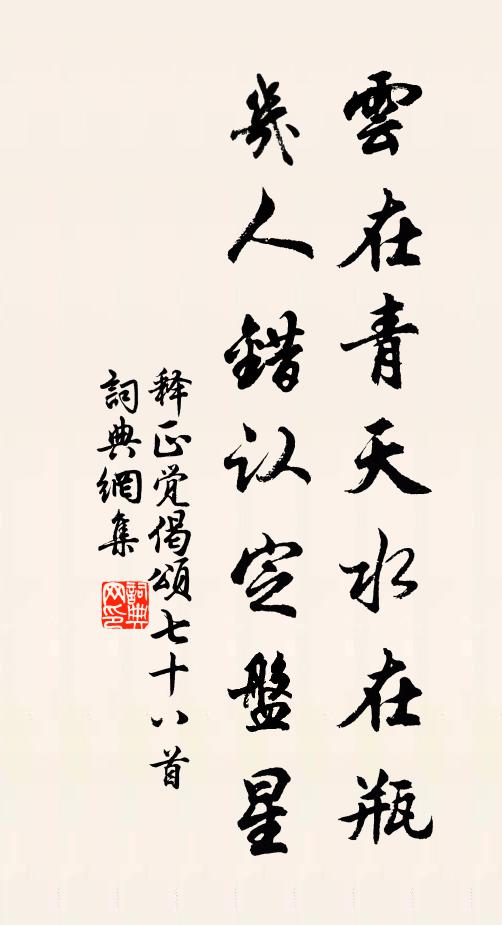 雲在青天水在瓶
幾人錯认定盤星
释正觉偈頌七十八首
詞典網集
詞典网印